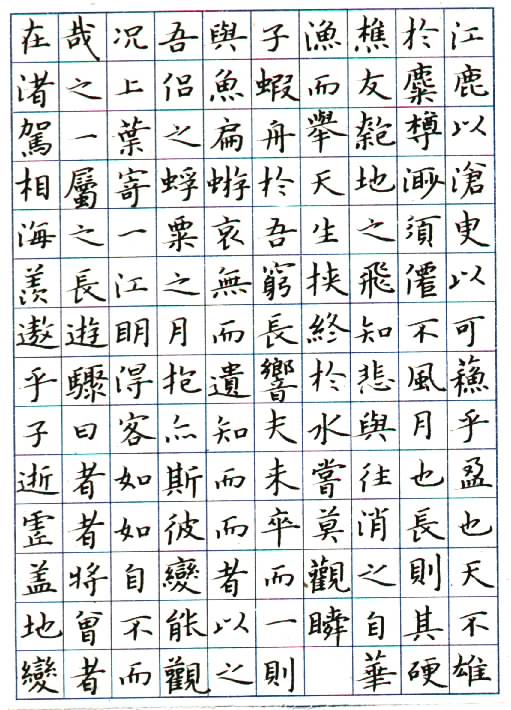 在哉况吾與子漁樵於江
渚之上侶魚蝦而友麋鹿
駕一葉之扁舟舉匏樽以
相屬寄蜉蝣於天地渺滄
海之一粟哀吾生之須臾
羨長江之無窮挾飛僊以
遨遊明月而長終知不可
乎驟得抱遺響於悲風蘓
子曰客亦知夫水與月乎
逝者如斯而未嘗往也盈
虛者如彼而卒莫消長也
盖將自變者而觀之則天
地曾不能以一瞬自其不
變者而觀之則 華硬雄